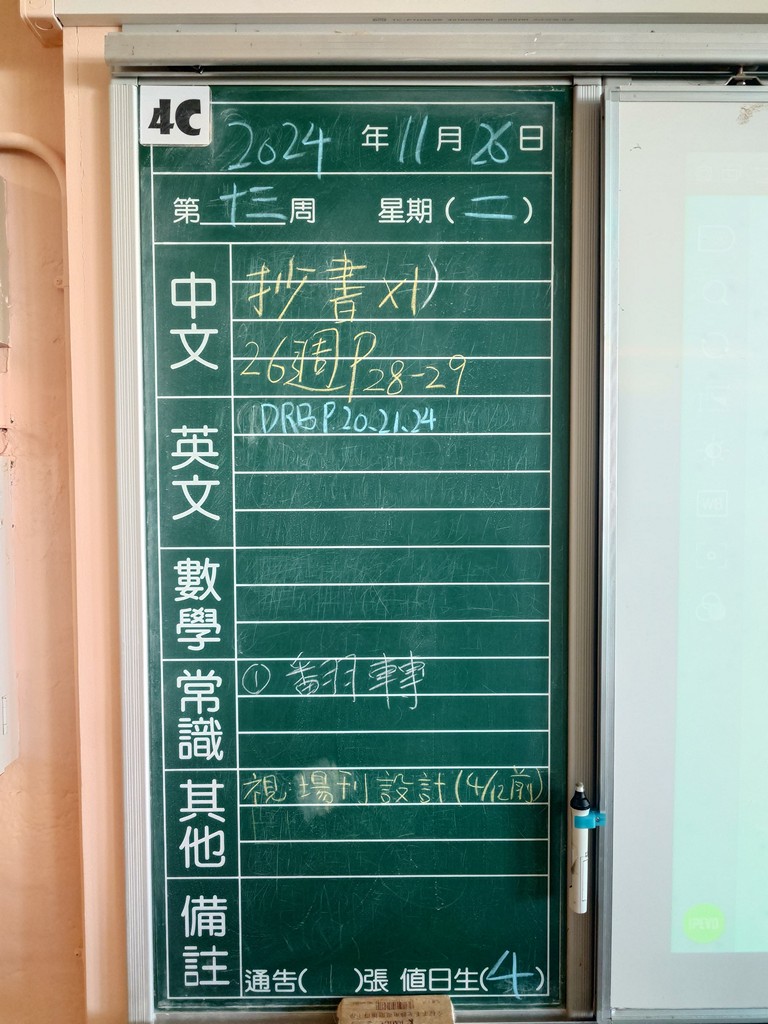 4C
2024年11月26日
第十三周 星期(二)
中文
抄書x1)
26週P28-29
英文
DRB P20、21、24
數學
常識
① 翻轉
其他
視:場刊設計(4/12前)
備註
通告( )張 值日生(4)